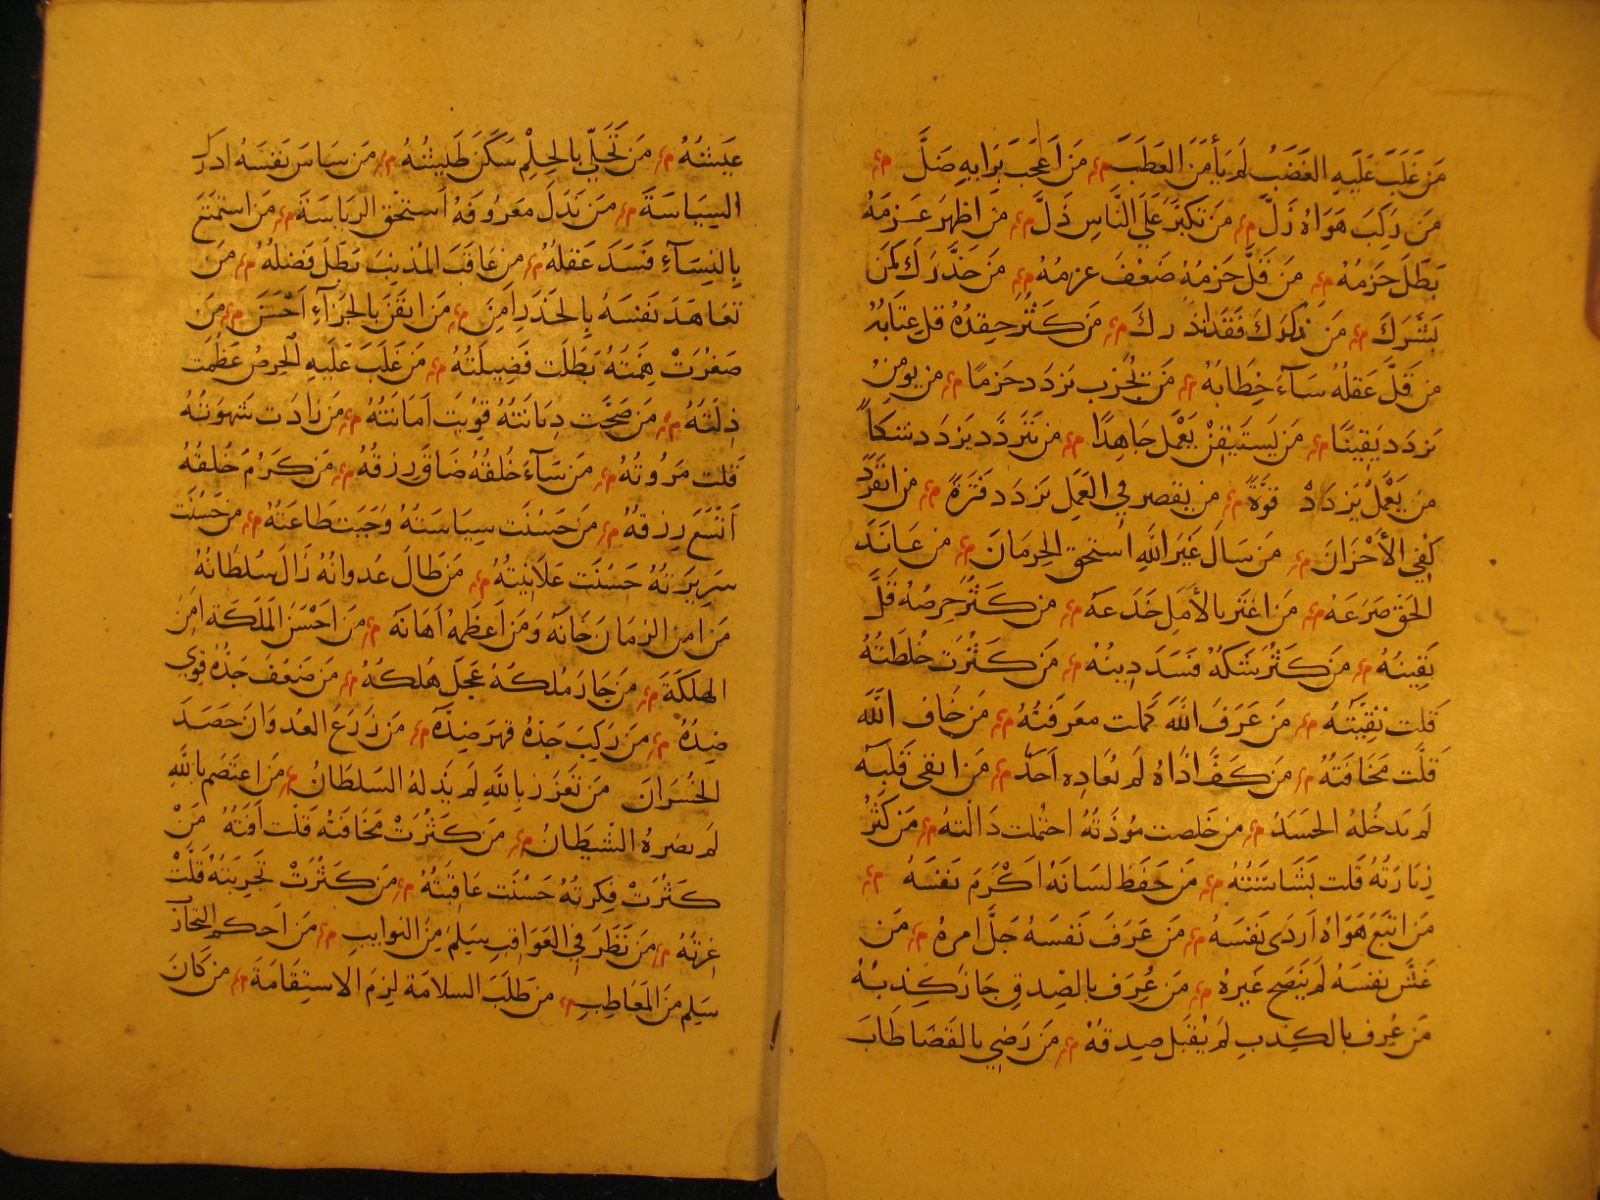 مَن غَلَبَ عَلَيهِ الغَضَبُ لَم يَأمَن العَطَبَ مَن اَعجَبَ بَرايهِ ضَلَّ
مَن رَكِبَ هَوَاهُ زَلَّ مَن تَكبَّرَ عَلَي النَّاسِ ذَلَّ من اظهرَ عَزمَهُ
بَطَلَ حَزمُهُ مَن قَلَّ حَزمُهُ ضَعُفَ عزمُهُ مَن حَذَّرَكَ كَمَن
بَشَّرَكَ مَن ذكرك فَقَد انذرك مَن كَثُرَ حِقدُهُ قل عِتَابُهُ
من قَلَّ عَقلُهُ سَآءَ خِطَابُهُ مَن يُجَرب يزدَد حَزمًا من يومِن
يزدَد يَقِينًا مَن يَستَيقِنْ يَعْمَل جَاهِدًا من يَتَردَّد يَزدَد شكاً
من يَعْمَلْ يَزدَادْ قوَّةً من يقصر فِي العَمَلِ يَزدَد فَترَةً من انفَرَدَ
كُفِي الأَحْزَانَ مَن سَالَ غَيرَ اللهِ استحق الحِرمَانَ من عَانَدَ
الحَقَ صَرَعَهُ مَن اغتَر بالأَمَلِ خَدَعَهُ من كَثُرَ حِرصُهُ قَلَّ
يَقِينُهُ مَن كَثُرَ شَكهُ فَسَدَ دِينُهُ مَن كَثُرَت خُلطَتُهُ
قَلت تَقِيَّتُهُ مَن عَرَفَ اللهَ كَملت معرَفتُهُ مَن خَاف اللهَ
قَلَّت مَخَافَتُهُ مَن كَفَّ اذَاهُ لم يُعَادِه اَحَدٌ مَن انقى قَلبَه
لَم يَدخُلهُ الحَسَدُ من خَلصت مَوَدَّتُهُ احتُملت دَالّتهُ مَن كَثُرَ
زِيَارَتَهُ قَلت بَشَاشَتُهُ مَن حَفَظ لسَانَهُ اَكْرَمَ نَفسَهُ
مَن اتبَعَ هَوَاهُ اَردَى نَفسَهُ مَن عَرَفَ نَفسَهُ جَلَّ امرهُ مَن
غَشَّ نفسَهُ لَم يَنصَح غَيرهُ مَن عُرِفَ بالصِدقِ جَازَ كِذبُهُ
مَن عُرِفَ بالكِذبِ لَم يُقبَل صِدقهُ مَن رَضِي بالقَضَا طَابَ
عَيشُهُ مَن تَحَلّي بالحِلمِ سَكَنَ طَيشُهُ مَن سَاسَ نَفسَهُ ادرك
السِيَاسَةَ مَن بَذَلَ مَعروفهُ اَستَحق الرياسَةَ مَن استمتَعَ
بِالنِسَآءِ فَسَدَ عَقلُهُ من عَاقَبَ المُذنِبَ بَطَلَ فَضلُهُ مَن
تعَاهَدَ نَفسَهُ بِالحَذَرِ اَمِنَ مَن ايقَن بالجَزَآءِ اَحْسَنَ مَن
صَغُرَتْ هِمَتُهُ بَطَلَت فَضِيلَتُهُ مَن غَلَبَ عَلَيهِ الحِرصُ عَظُمَت
ذِلَتُهُ مَن صَحَّت دِيَانَتُهُ قَوِيَت اَمَانَتُهُ مَن زادَت شَهوَتُهُ
قَلت مَرُوتُهُ مَن سَآءَ خُلقُهُ ضَاقَ رِزقُهُ مَن كَرُمَ خُلقُهُ
اَتَّسَعَ رِزقهُ مَن حَسُنَت سِيَاسَتُهُ وَجَبَت طَاعَتُهُ من حَسُنَت
سَرِيرَتُهُ حَسُنَت عَلَانِيَتُهُ مَن طَالَ عُدوانُهُ زَالَ سُلطَانُهُ
مَن امن الزمَانَ خَانَهُ وَمَن اَعظَمهُ اَهَانَهُ مَن اَحْسَنَ المَلَكَة امِنَ
الهلَكَةَ مَن جَارَ مُلكهُ عَجلَ هُلكهُ مَن ضَعُفَ جَدُهُ قوِي
ضِدُهُ مَن رَكِبَ جَدهُ قهرَ ضِدَّهُ مَن زَرَعَ العدوَانَ حَصَدَ
الخُسرَانَ مَن تَعَزَز باللهِ لَم يَذِلهُ السَلطَانُ مَن اعتَصم باللهِ
لم يضرهُ الشَيطَانُ مَن كَثُرَتْ مَخَافَتهُ قَلت اَفَتهُ مَنْ
كَثُرَتْ فِكرتهُ حَسُنَت عَاقِبَتُهُ مَن كَثُرَتْ تَجرِبَتهُ قَلَّتْ
غِرتهُ مَن نَظَرَ فِي العَوَاقِبِ سَلِمَ مِنَ النوايبِ مَن اَحكم التجارَب
سَلِم مِنَ المَعَاطِبِ من طَلَبَ السلامَة لزِمَ الاستِقَامَةَ من كَانَ